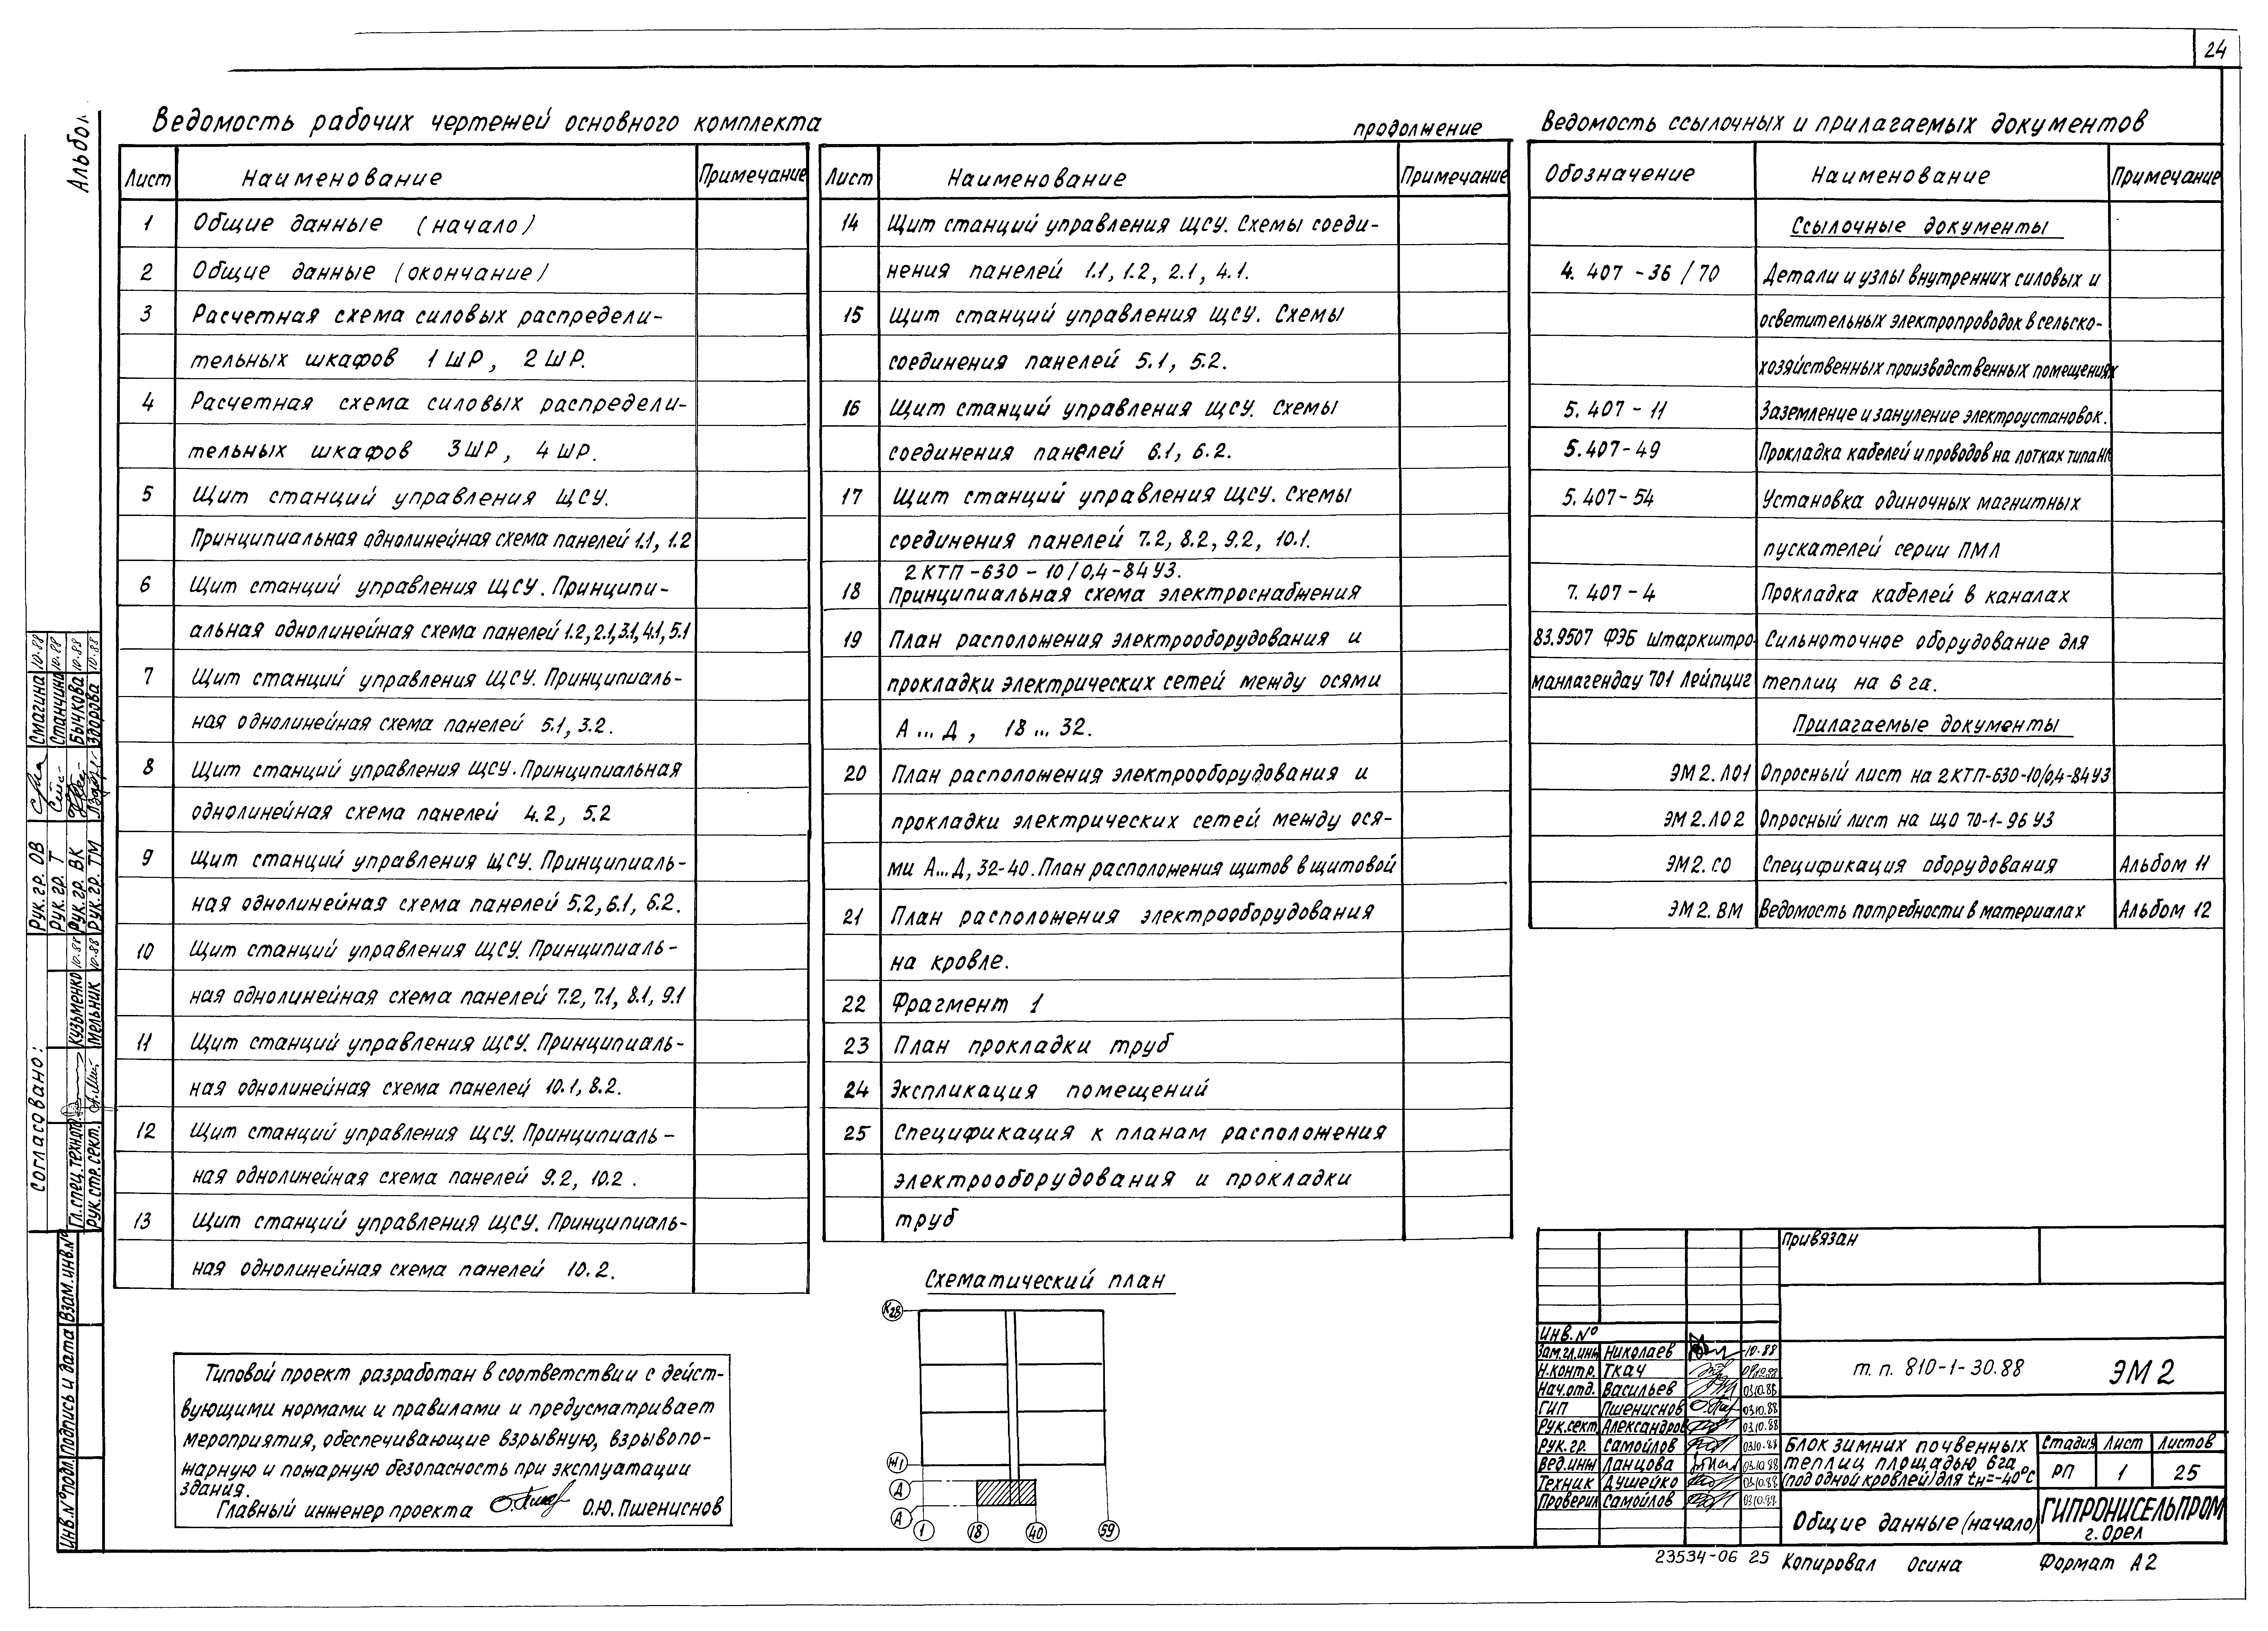 24
Альбом
Ведомость рабочих чертежей основного комплекта
Лист Наименование Примечание
1 Общие данные (начало)
2 Общие данные (окончание)
3 Расчетная схема силовых распредели-
тельных шкафов 1ШР, 2ШР.
4 Расчетная схема силовых распредели-
тельных шкафов 3ШР, 4ШР.
5 Щит станций управления ЩСУ.
Принципиальная однолинейная схема панелей 1.1, 1.2
6 Щит станций управления ЩСУ. Принципи-
альная однолинейная схема панелей 1.2, 2.1, 3.1, 4.1, 5.1
7 Щит станций управления ЩСУ. Принципиаль-
ная однолинейная схема панелей 5.1, 3.2.
8 Щит станций управления ЩСУ. Принципиальная
однолинейная схема панелей 4.2, 5.2
9 Щит станций управления ЩСУ. Принципиаль-
ная однолинейная схема панелей 5.2, 6.1, 6.2.
10 Щит станций управления ЩСУ. Принципиаль-
ная однолинейная схема панелей 7.2, 7.1, 8.1, 9.1
11 Щит станций управления ЩСУ. Принципиаль-
ная однолинейная схема панелей 10.1, 8.2.
12 Щит станций управления ЩСУ. Принципиаль-
ная однолинейная схема панелей 9.2, 10.2.
13 Щит станций управления ЩСУ. Принципиаль-
ная однолинейная схема панелей 10.2.
продолжение
Лист Наименование Примечание
14 Щит станций управления ЩСУ. Схемы соеди-
нения панелей 1.1, 1.2, 2.1, 4.1.
15 Щит станций управления ЩСУ. Схемы
соединения панелей 5.1, 5.2.
16 Щит станций управления ЩСУ. Схемы
соединения панелей 6.1, 6.2.
17 Щит станций управления ЩСУ. Схемы
соединения панелей 7.2, 8.2, 9.2, 10.1.
2КТП-630-10/0,4-84У3.
18 Принципиальная схема электроснабжения
19 План расположения электрооборудования и
прокладки электрических сетей между осями
А...Д, 18...32.
20 План расположения электрооборудования и
прокладки электрических сетей между ося-
ми А...Д, 32-40. План расположения щитов в щитовой
21 План расположения электрооборудования
на кровле.
22 Фрагмент 1
23 План прокладки труб
24 Экспликация помещений
25 Спецификация к планам расположения
электрооборудования и прокладки
труб
Ведомость ссылочных и прилагаемых документов
Обозначение Наименование Примечание
Ссылочные документы
4.407-36/70 Детали и узлы внутренних силовых и
осветительных электропроводок в сельско-
хозяйственных производственных помещениях
5.407-11 Заземление и зануление электроустановок.
5.407-49 Прокладка кабелей и проводов на лотках типа НЛ
5.407-54 Установка одиночных магнитных
пускателей серии ПМЛ
7.407-4 Прокладка кабелей в каналах
83.9507 ФЭБ Штаркштро- Сильноточное оборудование для
манлагендау 701 Лейпциг теплиц на 6 га.
Прилагаемые документы
ЭМ2.Л01 Опросный лист на 2КТП-630-10/0,4-84У3
ЭМ2.Л02 Опросный лист на ЩО 70-1-96 У3
ЭМ2.СО Спецификация оборудования Альбом 11
ЭМ2.ВМ Ведомость потребности в материалах Альбом 12
Типовой проект разработан в соответствии с дейст-
вующими нормами и правилами и предусматривает
мероприятия, обеспечивающие взрывную, взрывопо-
жарную и пожарную безопасность при эксплуатации
здания.
Главный инженер проекта О.Ю. Пшениснов
Схематический план
К28
Ж1
Д
А
1 18 40 59
Согласовано:
Рук. гр. ОВ Смагина 10.88
Рук. гр. Т Станчина 10.88
Рук. гр. ВК Бычкова 10.88
Рук. гр. ТМ Здорова 10.88
Гл. спец. техн.отд. Кузьменко 10.88
Рук. стр. сект. Мельник 10.88
Инв.№подл. Подпись и дата Взам.инв.№
Привязан
Инв.№
Зам.гл.инж Николаев 10.88
Н.контр. Ткач
Нач.отд. Васильев 03.10.88
ГИП Пшениснов 03.10.88
Рук.сект. Александров 03.10.88
Рук.гр. Самойлов 03.10.88
Вед.инж Ланцова 03.10.88
Техник Душейко 03.10.88
Проверил Самойлов 03.10.88
т.п. 810-1-30.88 ЭМ2
Блок зимних почвенных
теплиц площадью 6га
(под одной кровлей) для tн=-40°С
Стадия Лист Листов
РП 1 25
Общие данные (начало)
ГИПРОНИСЕЛЬПРОМ
г. Орел
23534-06 25
Копировал Осина Формат А2